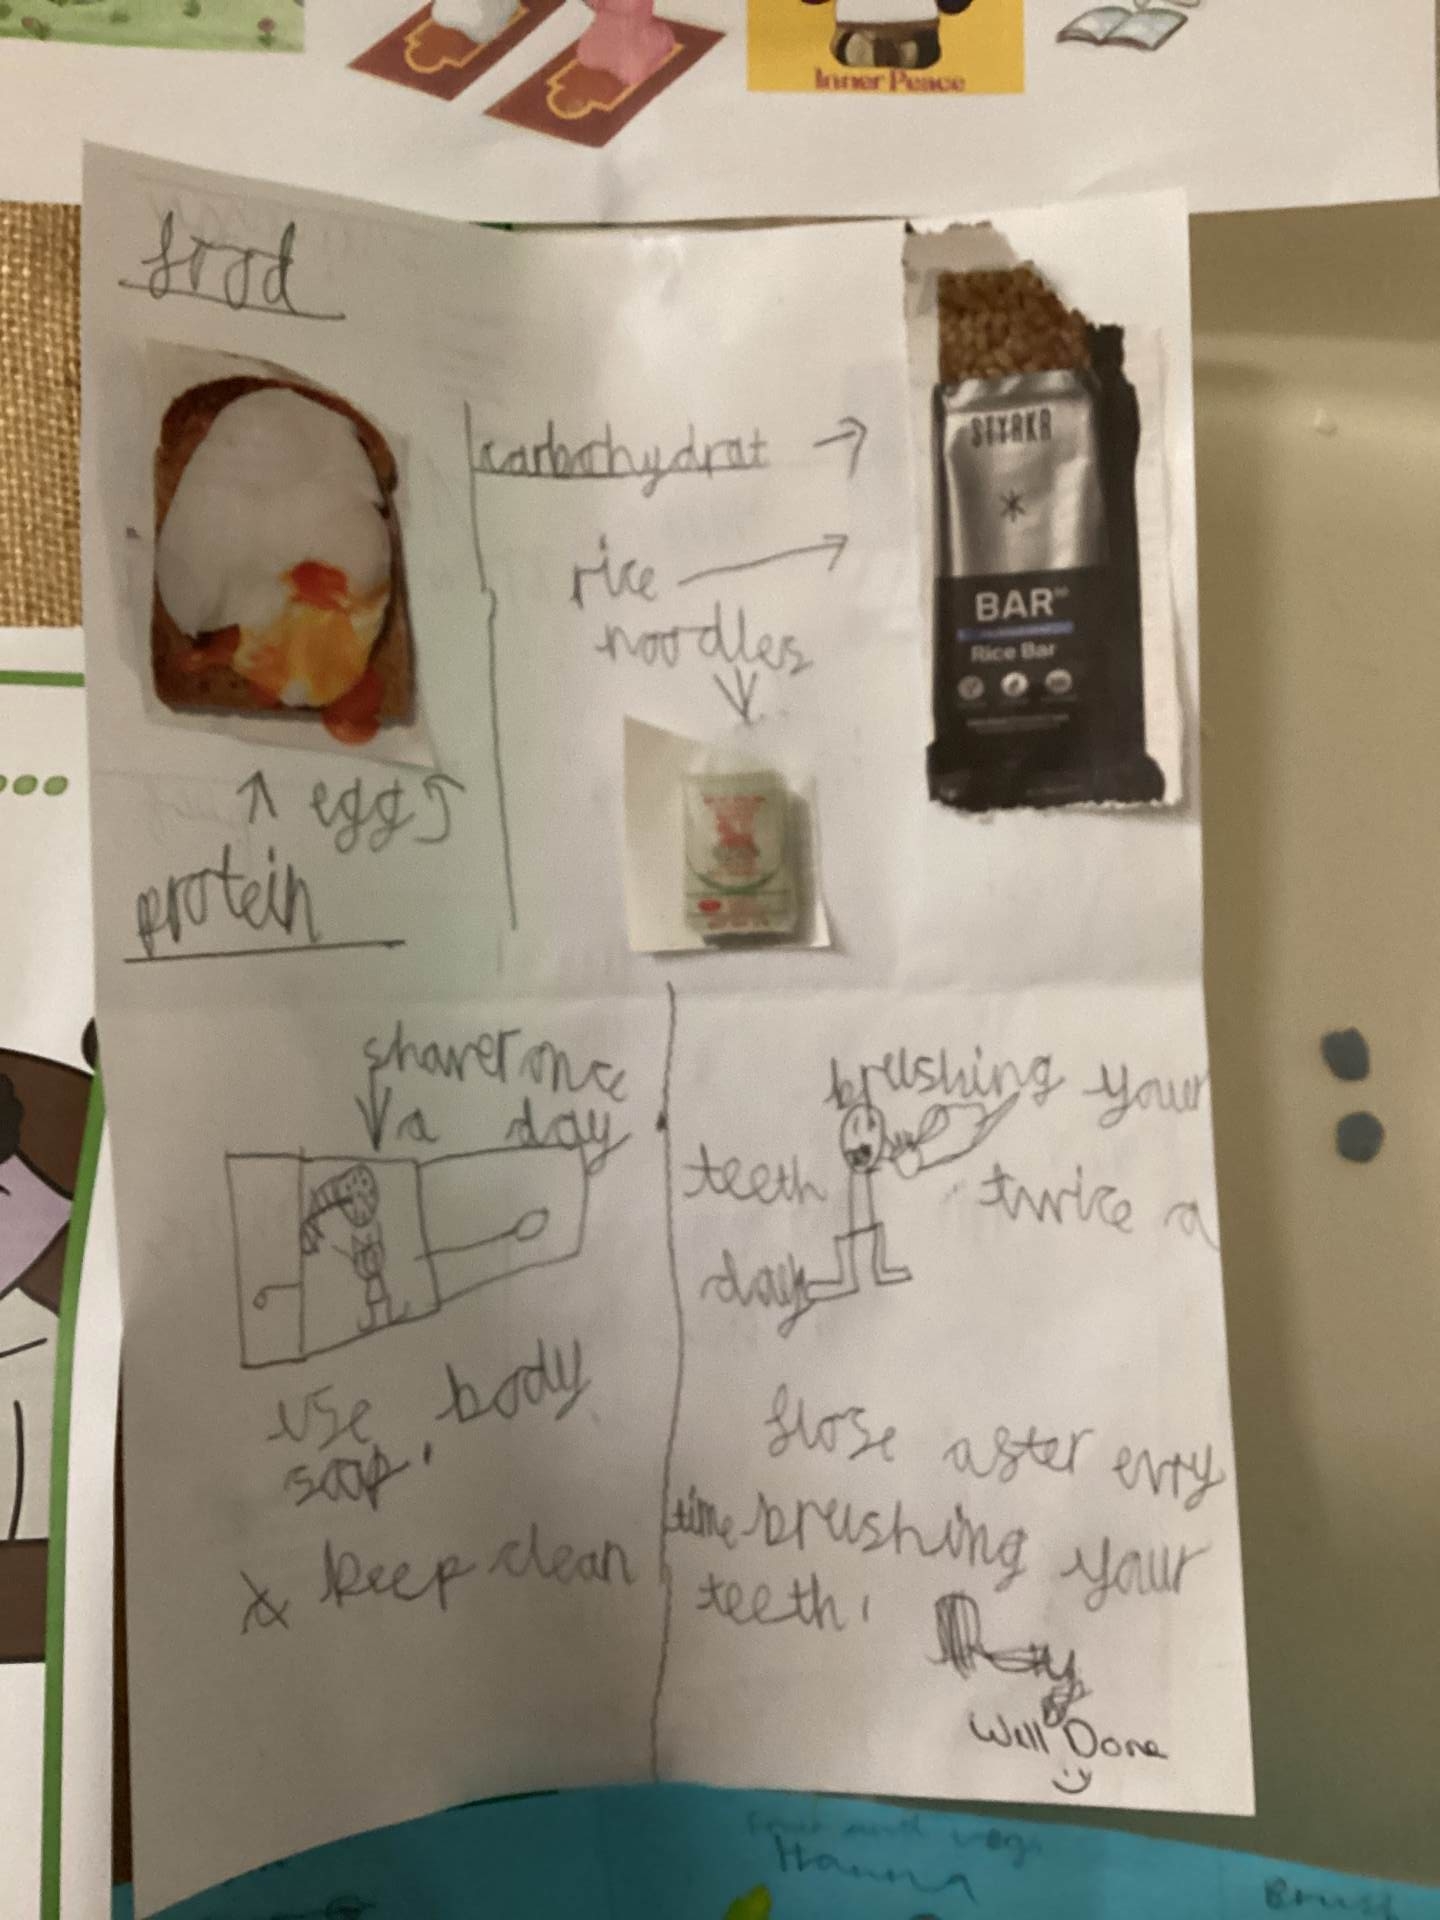 Inner Peace
food
carbohydrat
STYRKR
rice
noodles
BAR
Rice Bar
egg
protein
shawer once
a day
brushing your
teeth twice a
day
use body
soap.
keep clean
flose after evry
time brushing your
teeth.
Well Done
Fruit and veg
Hanna
Brush